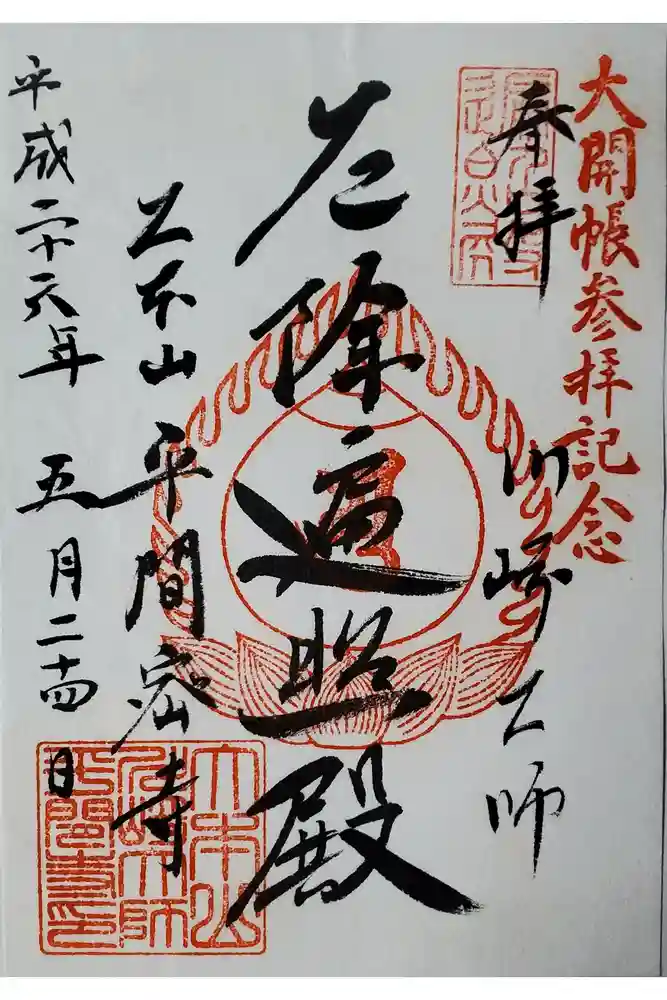 大開帳参拝記念
奉拝
川崎大師
厄除遍照殿
大本山 平間密寺
平成二十六年 五月二十四日
大本山
川崎大師
平間寺印